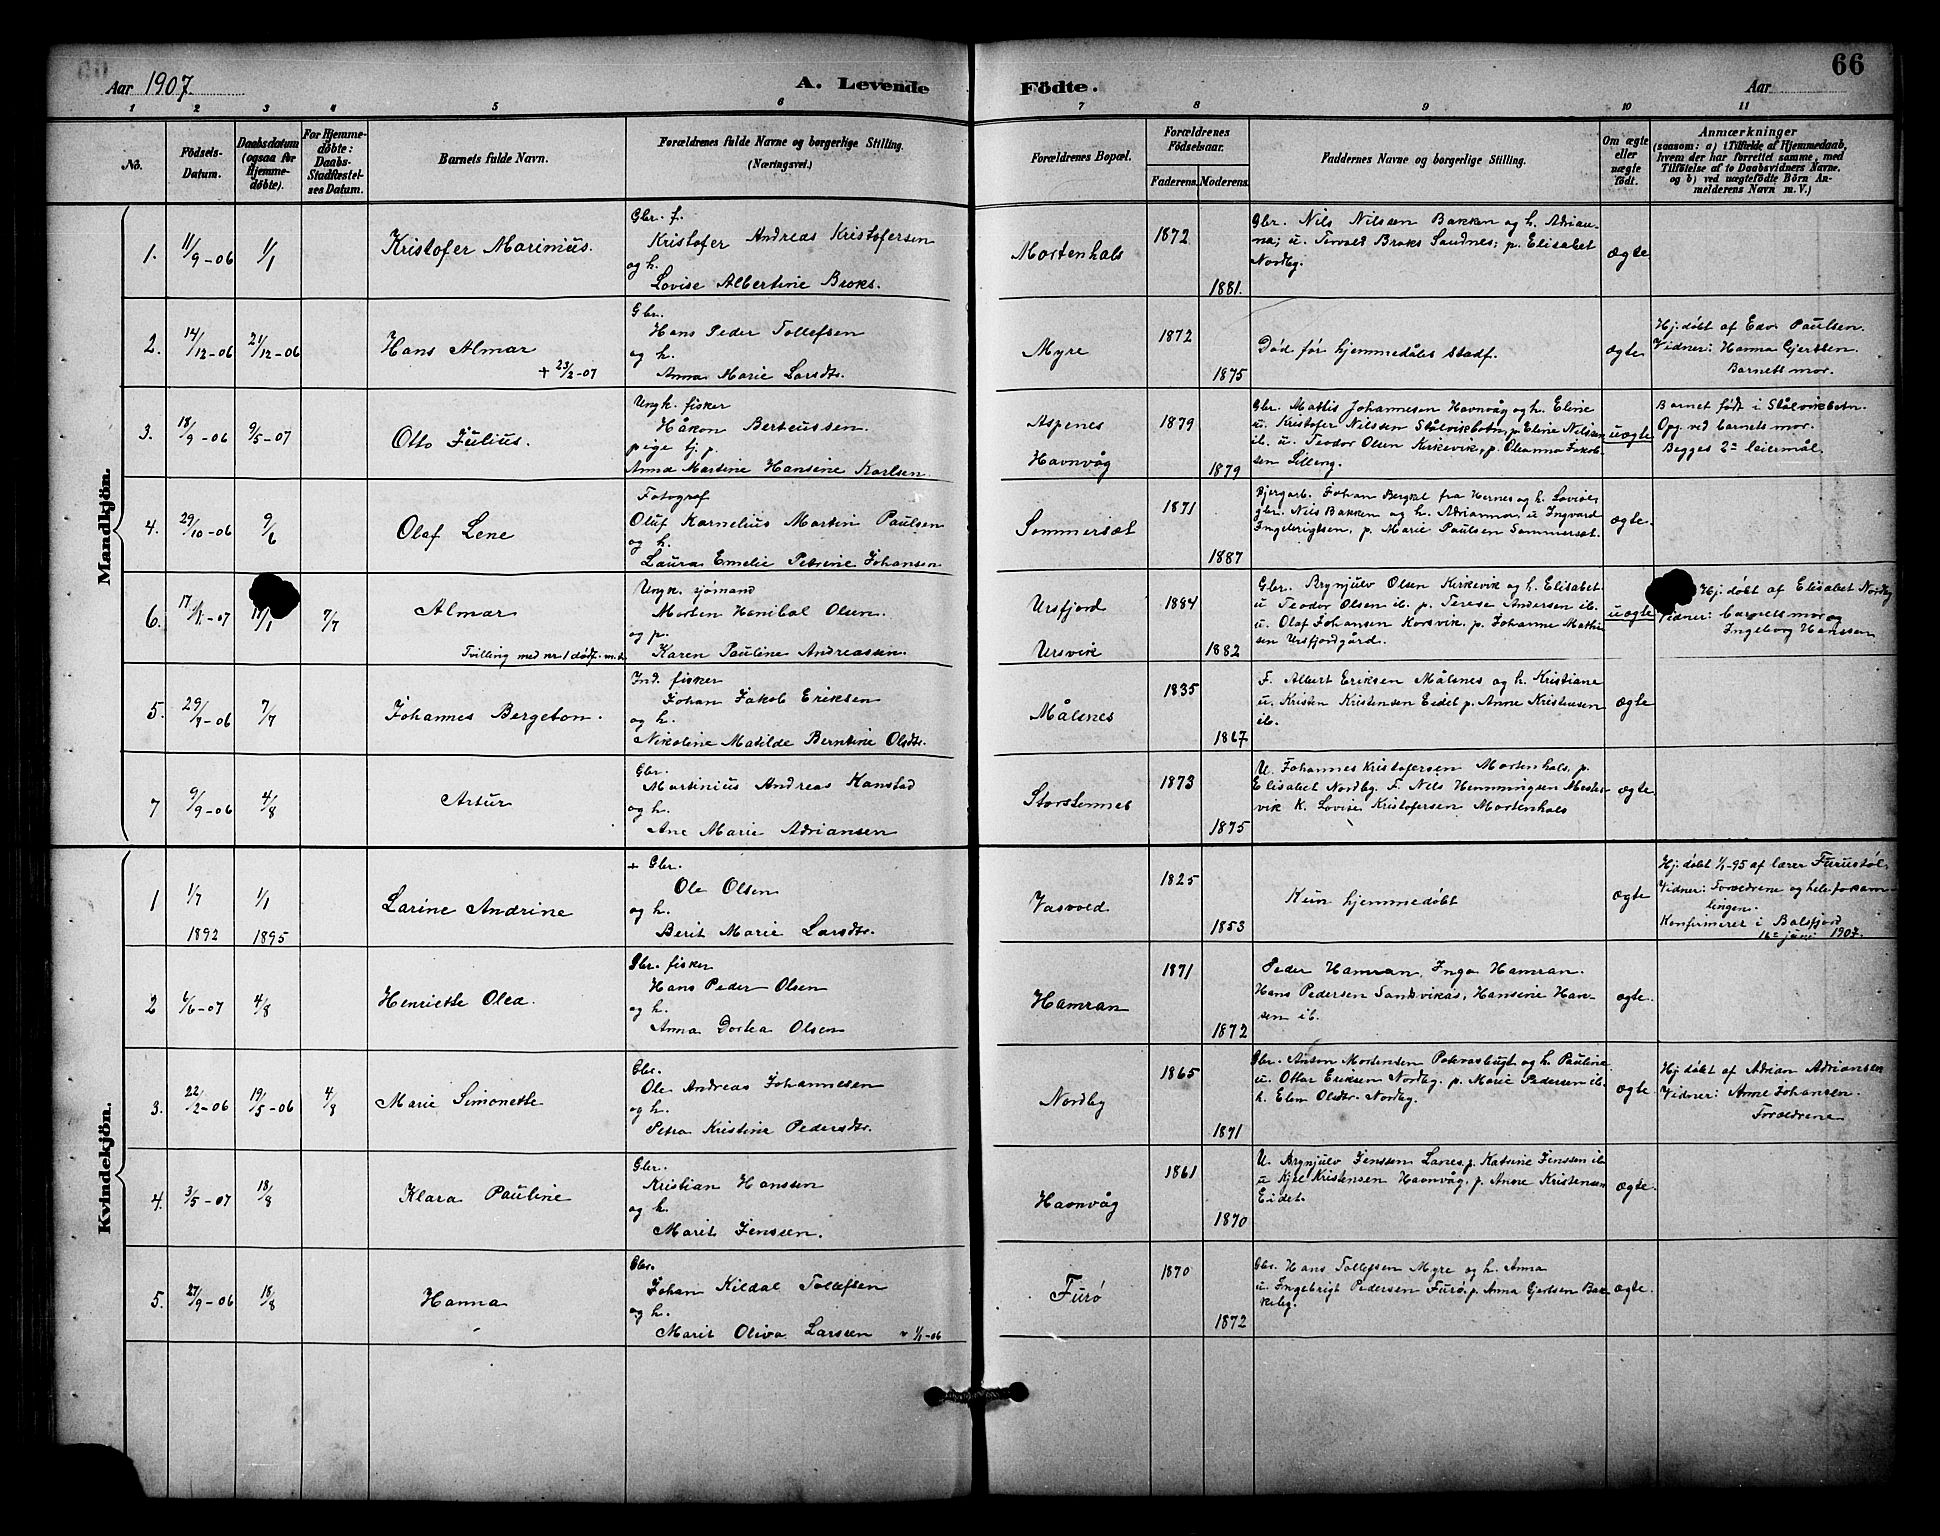 Aar 1907.
A. Levende
Födte.
Aar
66
1 2 3 4 5 6 7 8 9 10 11
No.
Födsels-
Datum.
Daabsdatum
(ogsaa for
Hjemme-
döbte).
For Hjemme-
döbte:
Daabs-
Stadfæstel-
ses Datum.
Barnets fulde Navn.
Forældrenes fulde Navne og borgerlige Stilling.
(Næringsvei.)
Forældrenes Bopæl.
Forældrenes
Födselsaar.
Faderens. Moderens.
Faddernes Navne og borgerlige Stilling.
Om ægte
eller
uægte
födt.
Anmærkninger
(saasom: a) i Tilfælde af Hjemmedaab,
hvem der har forrettet samme, med
Tilföielse af to Daabsvidners Navne,
og b) ved uægtefödte Börn An-
melderens Navn m. V.)
Mandkjön.
1. 11/9-06 1/1 Kristofer Marinius.
Gbr. f.
Kristofer Andreas Kristofersen
og h.
Lovise Albertine Broks.
Mortenhals 1872 1881.
Gbr. Nils Nilssen Bakken og h. Adrian-
na; u. Torvald Broks Sandnes; p. Elisabet
Nordby.
ægte
2. 14/12-06 21/12-06 Hans Almar
+ 23/2-07
Gbr.
Hans Peder Tollefsen
og h.
Anna Marie Larsdtr.
Myre 1872 1875
Död før hjemmedåbs stadf.
ægte
Hj. døbt af Edv. Paulsen.
Vidner: Hanna Gjertsen.
Barnets mor.
3. 18/9-06 9/5-07 Otto Julius.
Ungk. fisker
Håkon Berteussen.
pige tj. p.
Anna Martine Hansine Karlsen.
Aspenes
Havnvåg
1879 1879
Gbr. Mattis Johannesen Havnvåg og h. Eline
u. Kristofer Nilssen Stålvikbotn, p. Eline Nilssen
ib. u. Teodor Olsen Kirkevik, p. Oleanna Jakob-
sen Lilleng.
uægte
Barnet født i Stålvikbotn.
Opg. ved barnets mor.
Begges 2det leiermål.
4. 29/10-06 9/6 Olaf Lene
Fotograf
Oluf Kornelius Martin Paulsen
og h.
Laura Emelie Petrine Johansen
Sommersæt 1871 1887
Bjergarb. Johan Bergkl fra Hernes og h. Lovise;
gbr. Nils Bakken og h. Adrianna, u Ingvard
Ingebrigtsen, p. Marie Paulsen Sommersæt.
ægte.
6. 17/1-07 17/1 7/7 Almar
Tvilling med nr. 1 dødf. m.k.
Ungk. sjømand
Morten Hanibal Olsen.
og p.
Karen Pauline Andreassen.
Ursfjord
Ursvik
1884 1882
Gbr. Brynjulv Olsen Kirkevik og h. Elisabet
u Teodor Olsen ib. p. Terese Andersen ib.
u. Olaf Johansen Korsvik. p. Johanne Mathi-
sen Ursfjordgård.
uægte
Hj. døbt af Elisabet Nordby
Vidner: barnets mor og
Ingeborg Hanssen
5. 29/7-06 7/7 Johannes Bergeton.
Ind. fisker
Johan Jakob Eriksen
og h.
Nikoline Matilde Berntine Olsdtr.
Målsnes 1835 1867
F. Albert Eriksen Målsnes og h. Kristiane
u. Kristen Kristensen Eidet p. Anne Kristensen
ib.
ægte
7 9/9-06 4/8 Artur
Gbr.
Martinius Andreas Kanstad
og h.
Ane Marie Adriansen
Storstennes 1873 1875
U. Johannes Kristofersen Mortenhals, p.
Elisabet Nordby. F. Nils Hemmingsen Mester-
vik K. Lovise Kristofersen Mortenhals
ægte
Kvindekjön.
1 1/7 1892 1/1 1895 Larine Andrine
+ Gbr.
Ole Olsen
og h.
Berit Marie Larsdtr.
Vasvold 1825 1853
Kun hjemmedøbt
ægte
Hj. døbt 1/1-95 af lærer Furustøl
Vidner: Forældrene og hele forsam-
lingen.
Konfirmeret i Balsfjord
16de juni 1907.
2 6/6-07 4/8 Henriette Olea.
Gbr. fisker
Hans Peder Olsen
og h.
Anna Dortea Olsen
Hamran 1871 1872
Peder Hamran, Inga Hamran.
Hans Pedersen Sandvikås, Hansine Han-
sen ib.
ægte.
3. 22/2-06 19/5-06 4/8 Marie Simonette
Gbr.
Ole Andreas Johannesen
og h.
Petra Kristine Pedersdtr.
Nordby 1865 1871
Gbr. Anton Mortensen Pokvasbugt og h. Pauline.
u. Ottar Eriksen Nordby. p. Marie Pedersen ib.
h. Elen Olsdtr. Nordby.
ægte
Hj døbt af Adrian Adriansen
Vidner: Anne Johansen.
Forældrene
4. 3/5-07 18/8 Klara Pauline
Gbr.
Kristian Hanssen
og h.
Marit Jenssen.
Havnvåg 1861 1870
U. Brynjulv Jenssen Lanes, p. Katrine Jenssen ib
u Kjel Kristensen Havnvåg, p. Anne Kristensen
Eidet.
ægte.
5. 27/9-06 18/8 Hanna
Gbr.
Johan Kildal Tollefsen
og h.
Marit Oliva Larssen v 1/1-06
Furø 1870 1872
Gbr. Hans Tollefsen Myre og h. Anna
u. Ingebrigt Pedersen Furø, p. Anna Gjertsen Bak-
keby.
ægte.